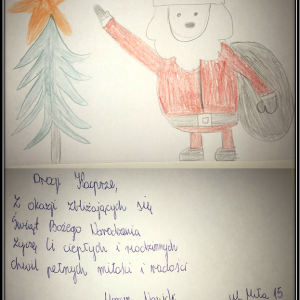 Drogi Kacprze,
Z okazji zbliżających się
Świąt Bożego Narodzenia
Życzę Ci ciepłych i rodzinnych
chwil pełnych miłości i radości
ul. Miła 15